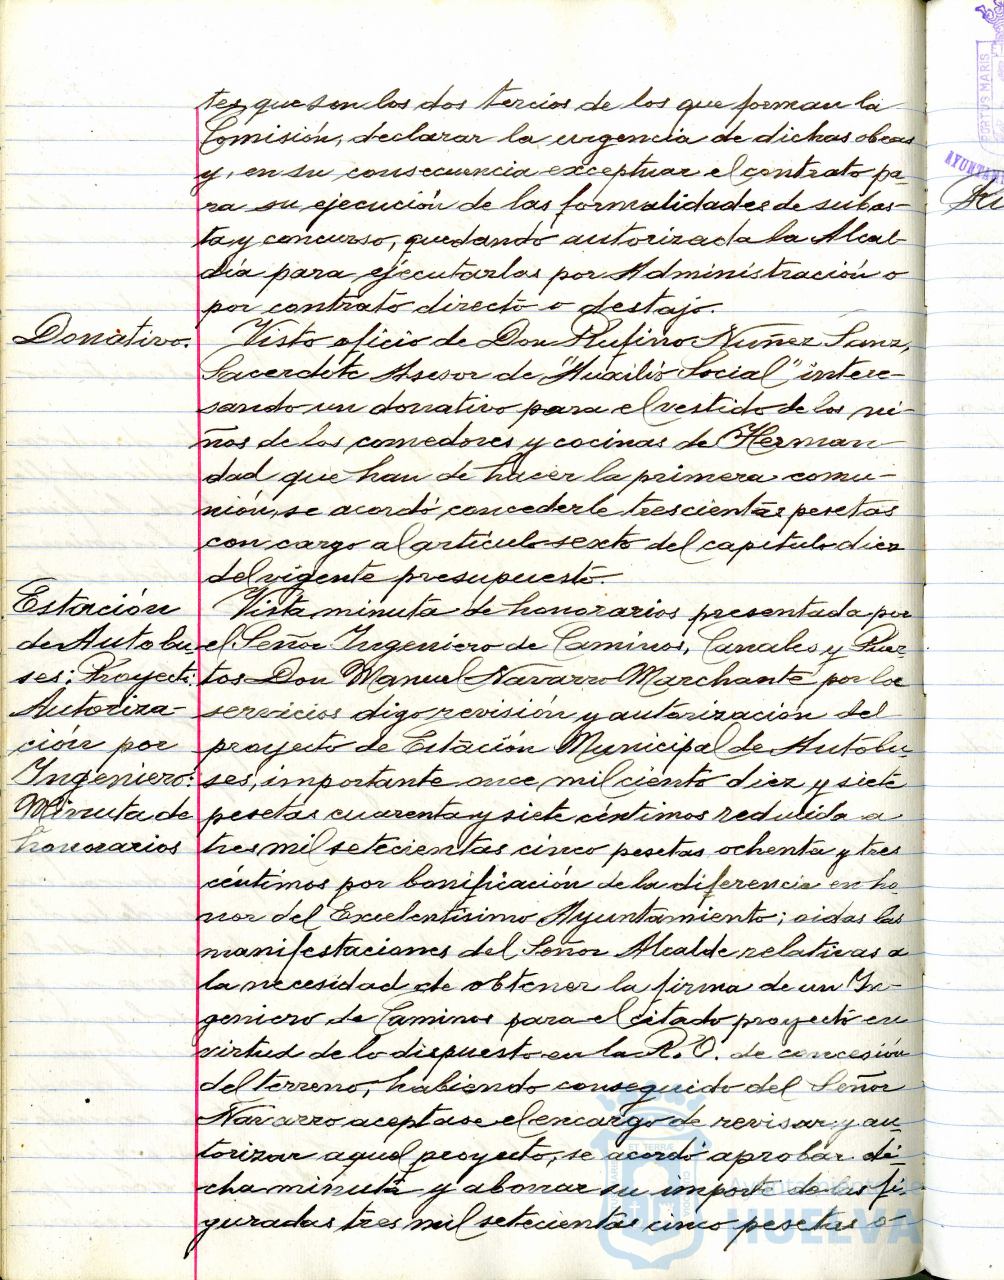 tes, que son los dos tercios de los que forman la
Comisión, declarar la urgencia de dichas obras
y, en su consecuencia exceptuar el contrato pa-
ra su ejecución de las formalidades de subas-
ta y concurso, quedando autorizada la Alcal-
día para ejecutarlas por Administración o
por contrato directo o destajo.
Donativo.
Visto oficio de Don Rufino Nuñez Sanz,
Sacerdote Asesor de "Auxilio Social" intere-
sando un donativo para el vestido de los ni-
ños de los comedores y cocinas de Herman-
dad que han de hacer la primera comu-
nión, se acordó concederle trescientas pesetas
con cargo al artículo sexto del capítulo diez
del vigente presupuesto.
Estación
de Autobu
ses: Proyect:
Autoriza-
ción por
Ingeniero:
Minuta de
honorarios
Vista minuta de honorarios presentada por
el Señor Ingeniero de Caminos, Canales y Puer-
tos Don Manuel Navarro Marchante por los
servicios digo revisión y autorización del
proyecto de Estación Municipal de Autobu-
ses, importante once mil ciento diez y siete
pesetas cuarenta y siete céntimos reducida a
tres mil setecientas cinco pesetas ochenta y tres
céntimos por bonificación de la diferencia en ho
nor del Excelentísimo Ayuntamiento; oidas las
manifestaciones del Señor Alcalde relativas a
la necesidad de obtener la firma de un In-
geniero de Caminos para el citado proyecto en
virtud de lo dispuesto en la R. O. de concesión
del terreno, habiendo conseguido del Señor
Navarro aceptase el encargo de revisar y au-
torizar aquel proyecto, se acordó aprobar di-
cha minuta y abonar su importe de las fi-
guradas tres mil setecientas cinco pesetas o-
PORTUS MARIS
Ayuntamiento de
HUELVA